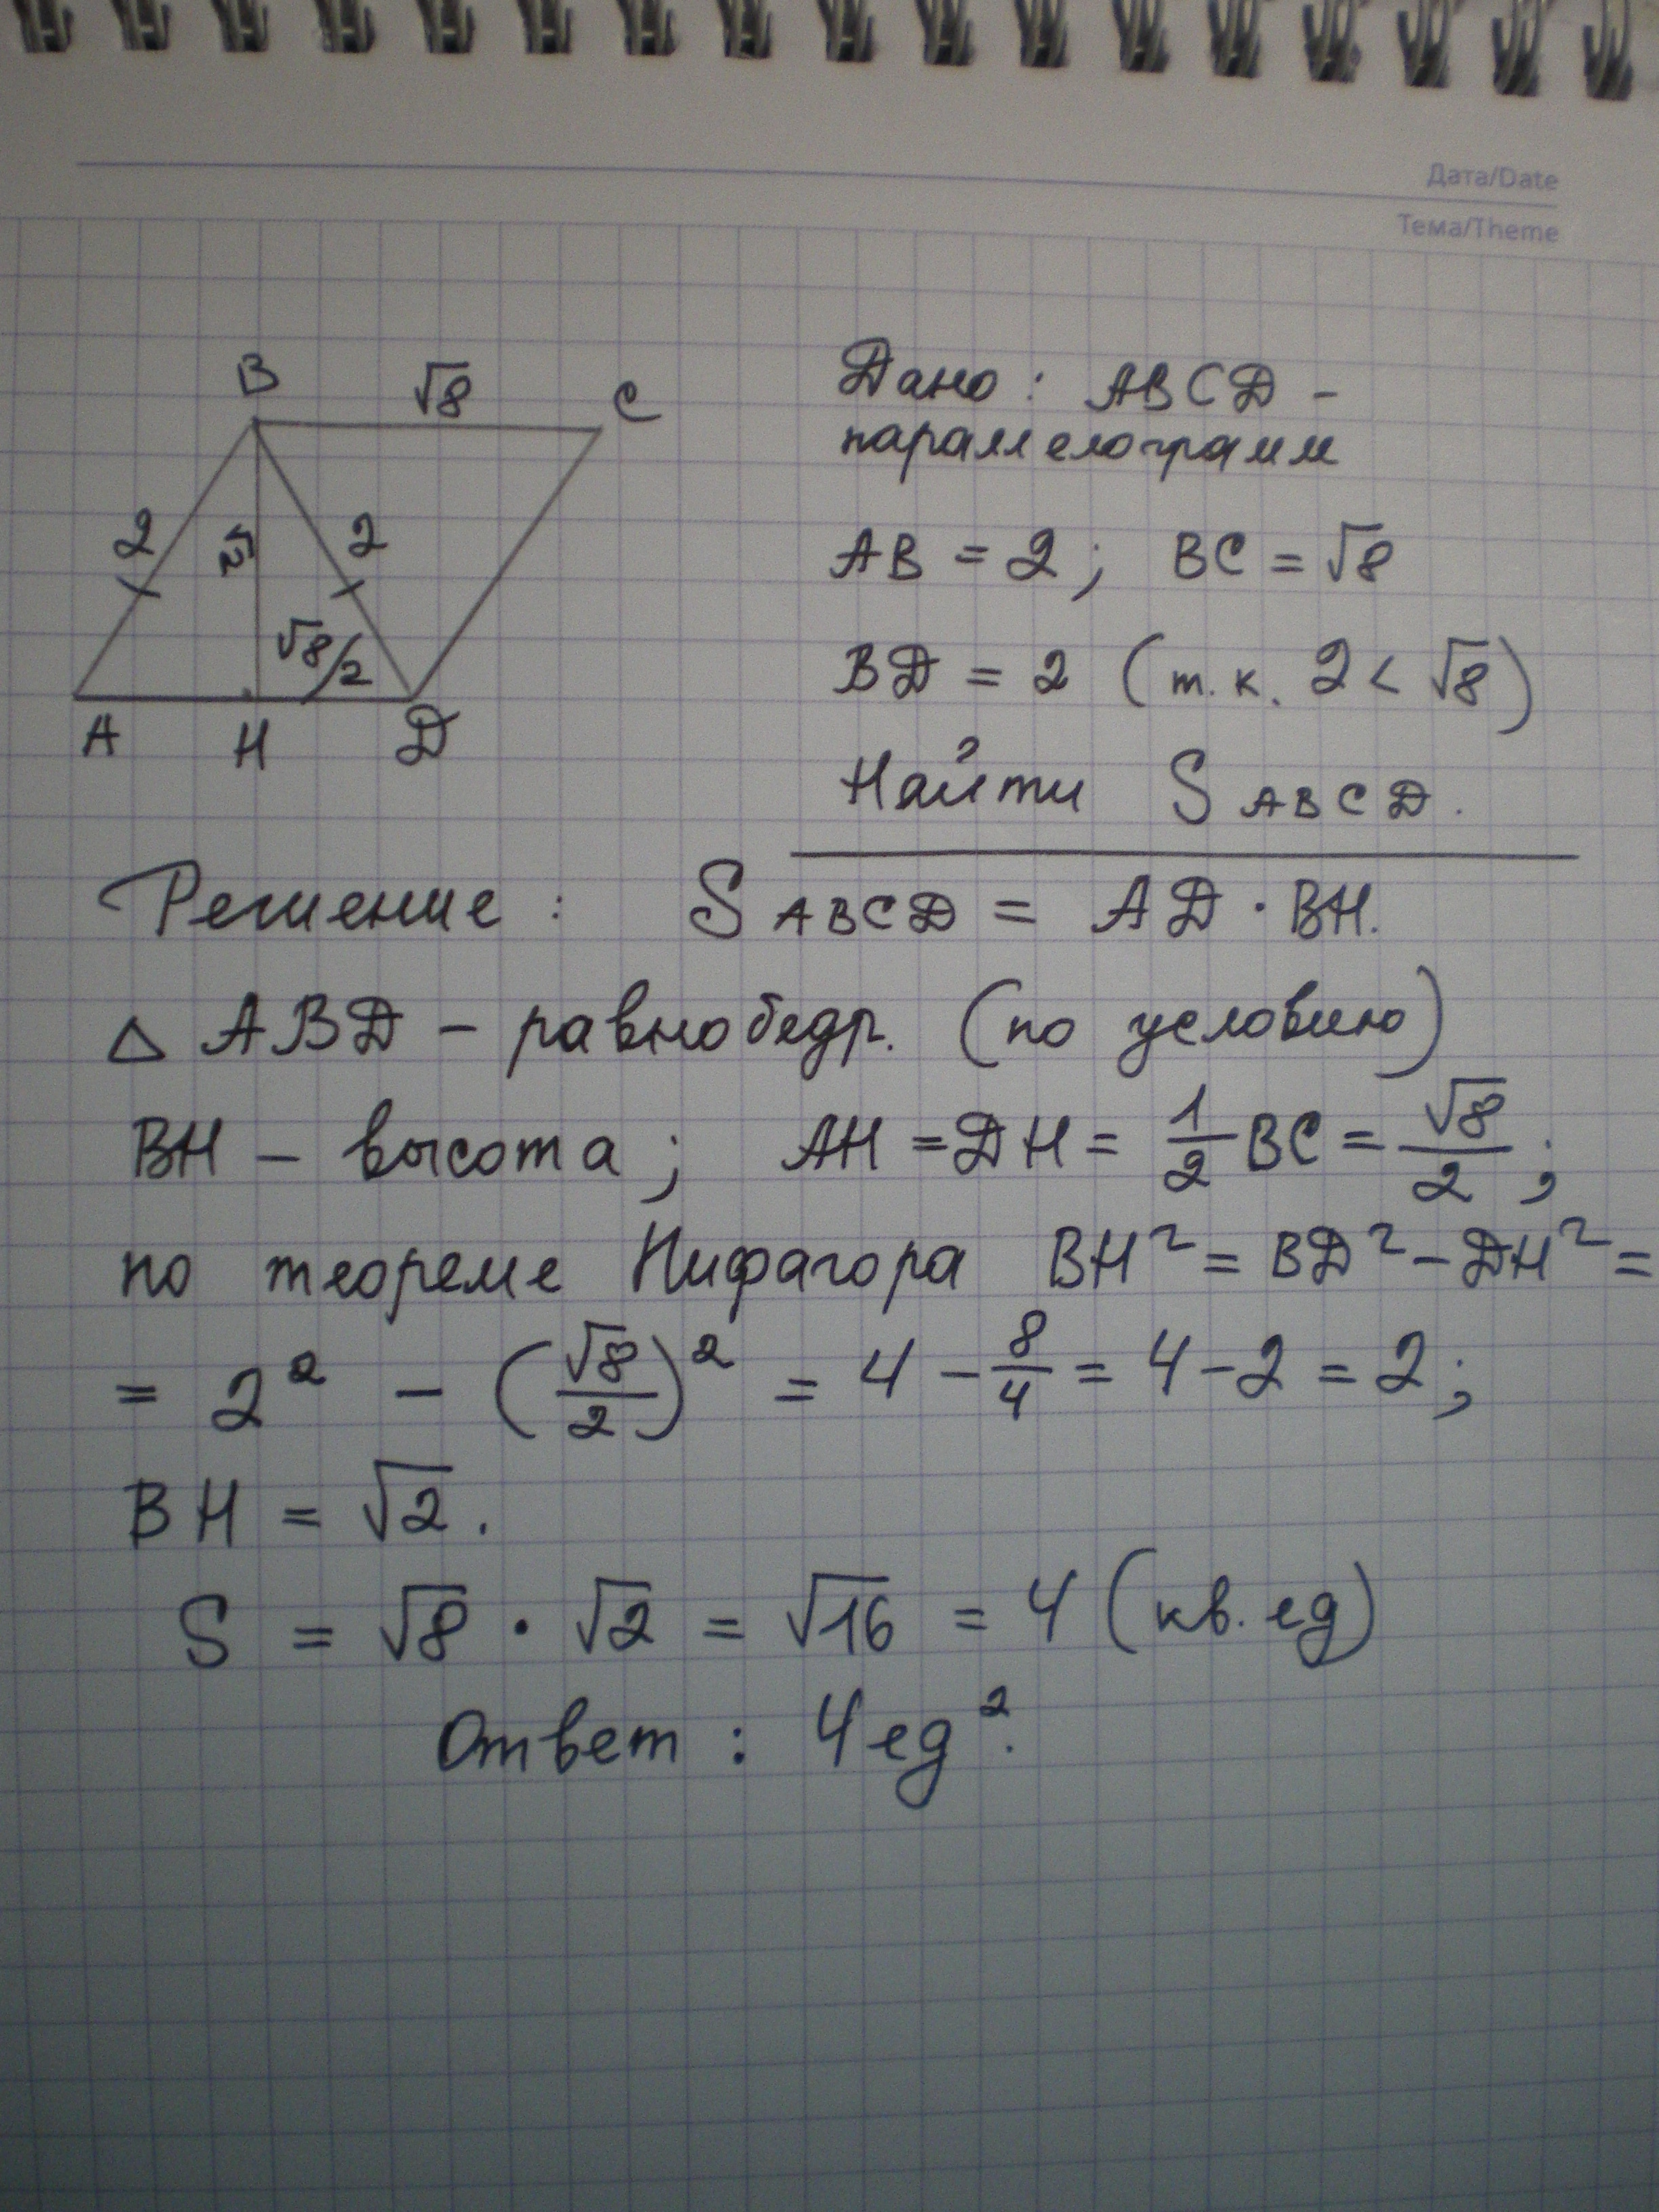 Дата/Date
Тема/Theme
B √8 C
2 √2 2
√8/2
A H D
Дано: ABCD –
параллелограмм
AB = 2; BC = √8
BD = 2 (т.к. 2 < √8)
Найти S ABCD.
Решение: S ABCD = AD · BH.
△ ABD – равнобедр. (по условию)
BH – высота; AH = DH = 1/2 BC = √8/2;
по теореме Пифагора BH² = BD² – DH² =
= 2² – (√8/2)² = 4 – 8/4 = 4 – 2 = 2;
BH = √2.
S = √8 · √2 = √16 = 4 (кв. ед)
Ответ: 4 ед².